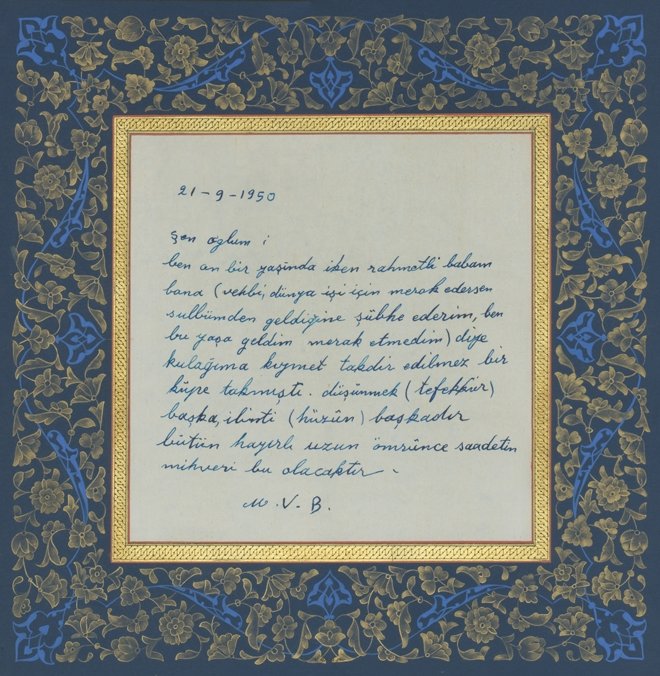 21-9-1950
Şen oğlum ;
ben on bir yaşında iken rahmetli babam
bana (vehbi, dünya işi için merak edersen
sulbümden geldiğine şübhe ederim, ben
bu yaşa geldim merak etmedim) diye
kulağıma kıymet takdir edilmez bir
küpe takmıştı. düşünmek (tefekkür)
başka, ilinti (hüzün) başkadır
bütün hayırlı uzun ömrünce saadetin
mihveri bu olacaktır.
M.V.B.